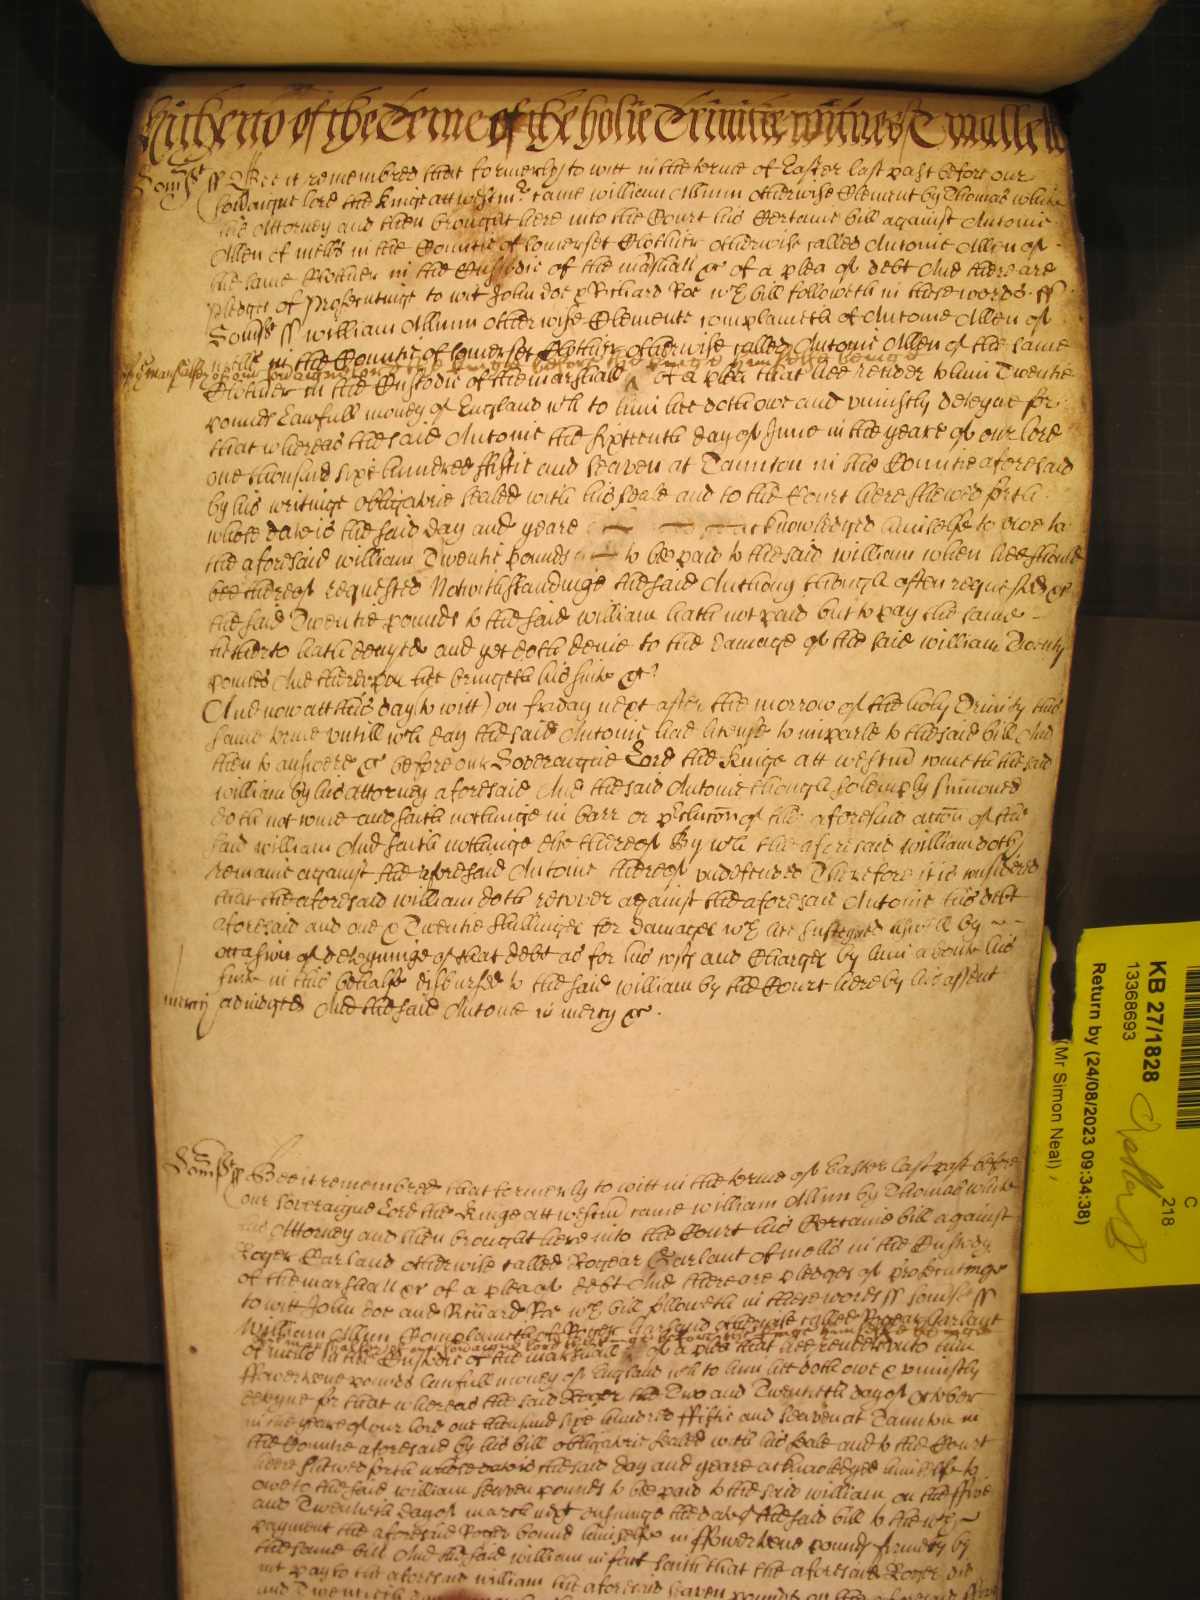 Hitherto of the Terme of the holie Trinitie witness T Mallett
Somst ss Bee it remembred that formerly to witt in the terme of Easter last past before our
soveraigne lord the Kinge att westmr came william Allunn otherwise Clement by Thomas white
his Attorney and then brought here into the Court his Certaine bill against Antonie
Allen of mells in the Countie of somerset Clothier otherwise called Antonie Allen of
the same Clothier in the Custodie of the marshall &c of a plea of debt And there are
pledges of Prosecutinge to wit John doe & Richard Roe wch bill followeth in these words ss
Somst ss william Allunn otherwise Clement complaineth of Antonie Allen of
mells in the Countie of somerset Clothier otherwise called Antonie Allen of the same
of our soveraigne lord the kinge before the kinge himselfe beinge
Clothier in the Custodie of the marshall of a plea that hee render to him Twentie
pounds Lawfull money of England wch to him hee doth owe and uniustly deteyne for
that whereas the said Antonie the sixteenth day of June in the yeare of our lord
one thousand sixe hundred fiftie and seaven at Taunton in the Countie aforesaid
by his writinge obligatorie sealed with his seale and to the Court here shewed forth
whose date is the said day and yeare acknowledged himselfe to owe to
the aforesaid william Twentie pounds to bee paid to the said william when hee should
bee thereof requested Notwithstandinge the said Anthony though often requested &c
the said Twentie pounds to the said william hath not paid but to pay the same
hitherto hath denyed and yet doth denie to the damage of the said william Twenty
pounds And thereupon hee bringeth his suite &c
And now att this day (to witt) on friday next after the morrow of the holy Trinity this
same terme untill wch day the said Antonie had license to imparle to the said bill And
then to answere &c before our Soveraigne Lord the Kinge att westmr cometh the said
william by his attorney aforesaid And the said Antonie though solemply summoned
doth not come and saith nothinge in barr or preclucon of the aforesaid accon of the
said william And saith nothinge else thereof By wch the aforesaid william doth
remaine against the aforesaid Antonie thereof undefended Therefore it is considered
that the aforesaid william doth recover against the aforesaid Antonie his debt
aforesaid and one & Twentie shillinges for damages wch hee susteyned aswell by
occasion of deteyninge of that debt as for his costs and Charges by him aboute his
suite in this behalfe disbursed to the said william by the Court here by his assent
mercy adiudged And the said Antonie in mercy &c
Somst ss Bee it remembred that formerly to witt in the terme of Easter last past before
our soveraigne Lord the Kinge att westmr came william Allunn by Thomas white
his Attorney and then brought here into the Court his Certaine bill against
Roger Garland otherwise called Rogear Garlant of mells in the Custody
of the marshall &c of a plea of debt And there are pledges of prosecutinge
to witt John doe and Richard Roe wch bill followeth in these words ss somst ss
William Allunn Complaineth of Roger Garland otherwise called Rogear Garlant
of mells in the Custodie of the marshall of a plea that hee render unto him
ffowerteene pounds lawfull money of England wch to him hee doth owe & uniustly
deteyne for that whereas the said Roger the Two and Twentieth day of October
in the yeare of our lord one thousand sixe hundred ffiftie and seaven at Taunton in
the Countie aforesaid by his bill obligatorie sealed with his seale and to the Court
heere shewed forth whose date is the said day and yeare acknowledged himselfe to
owe to the said william seaven pounds to bee paid to the said william on the ffive
and Twentieth day of march next ensuinge the date of the said bill to the wch
payment the aforesaid Roger bound himselfe in ffowerteene pounds firmely by
the same bill And the said william in fact saith that the aforesaid Roger did
not pay to the aforesaid william the aforesaid seaven pounds on the aforesaid ffive
and Twentieth
KB 27/1828
13368693
Return by (24/08/2023 09:34:38)
(Mr Simon Neal)
C
218